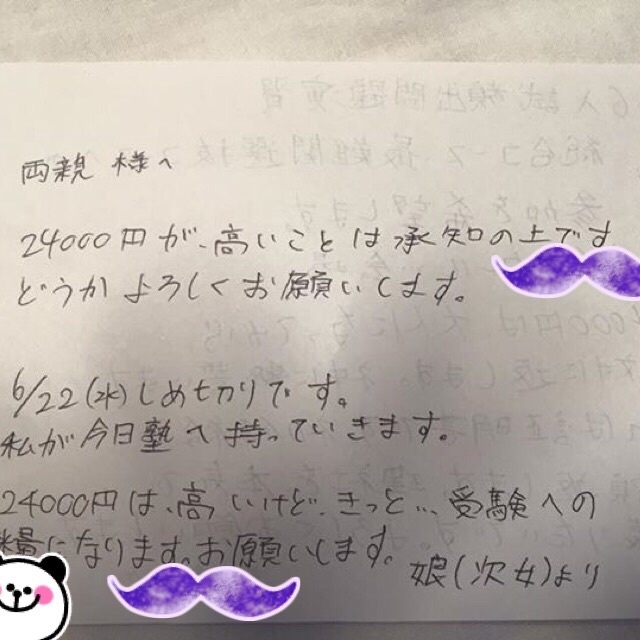 両親 様へ
24000円が、高いことは承知の上です
どうか よろしくお願いします。
6/22(水)しめ切りです。
私が今日塾へ持っていきます。
24000円は、高いけど、きっと… 受験への
糧になります。お願いします。
娘(次女)より